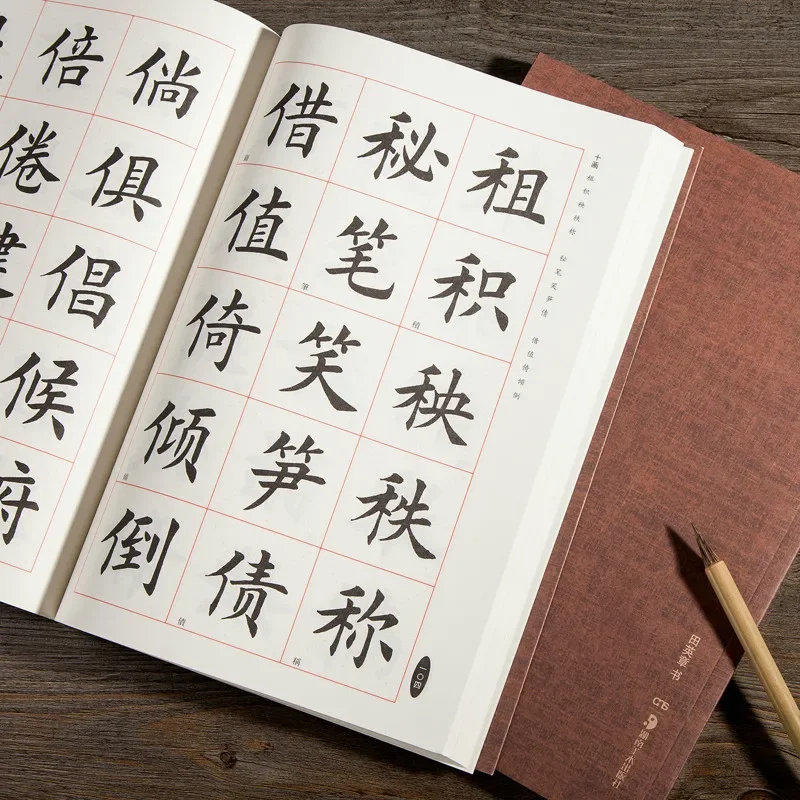 倘俱倡候
倍倦
十画 租积秧秩称 秘笔笑笋债 借值倚倾倒
租积秧秩称
積
稱
秘笔笑笋债
筆
債
借值倚倾倒
一〇四
田英章 书
湖南美术出版社